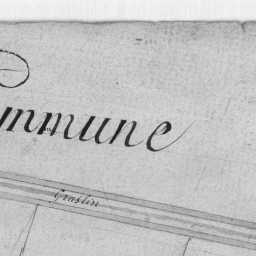 ommune
Graslin